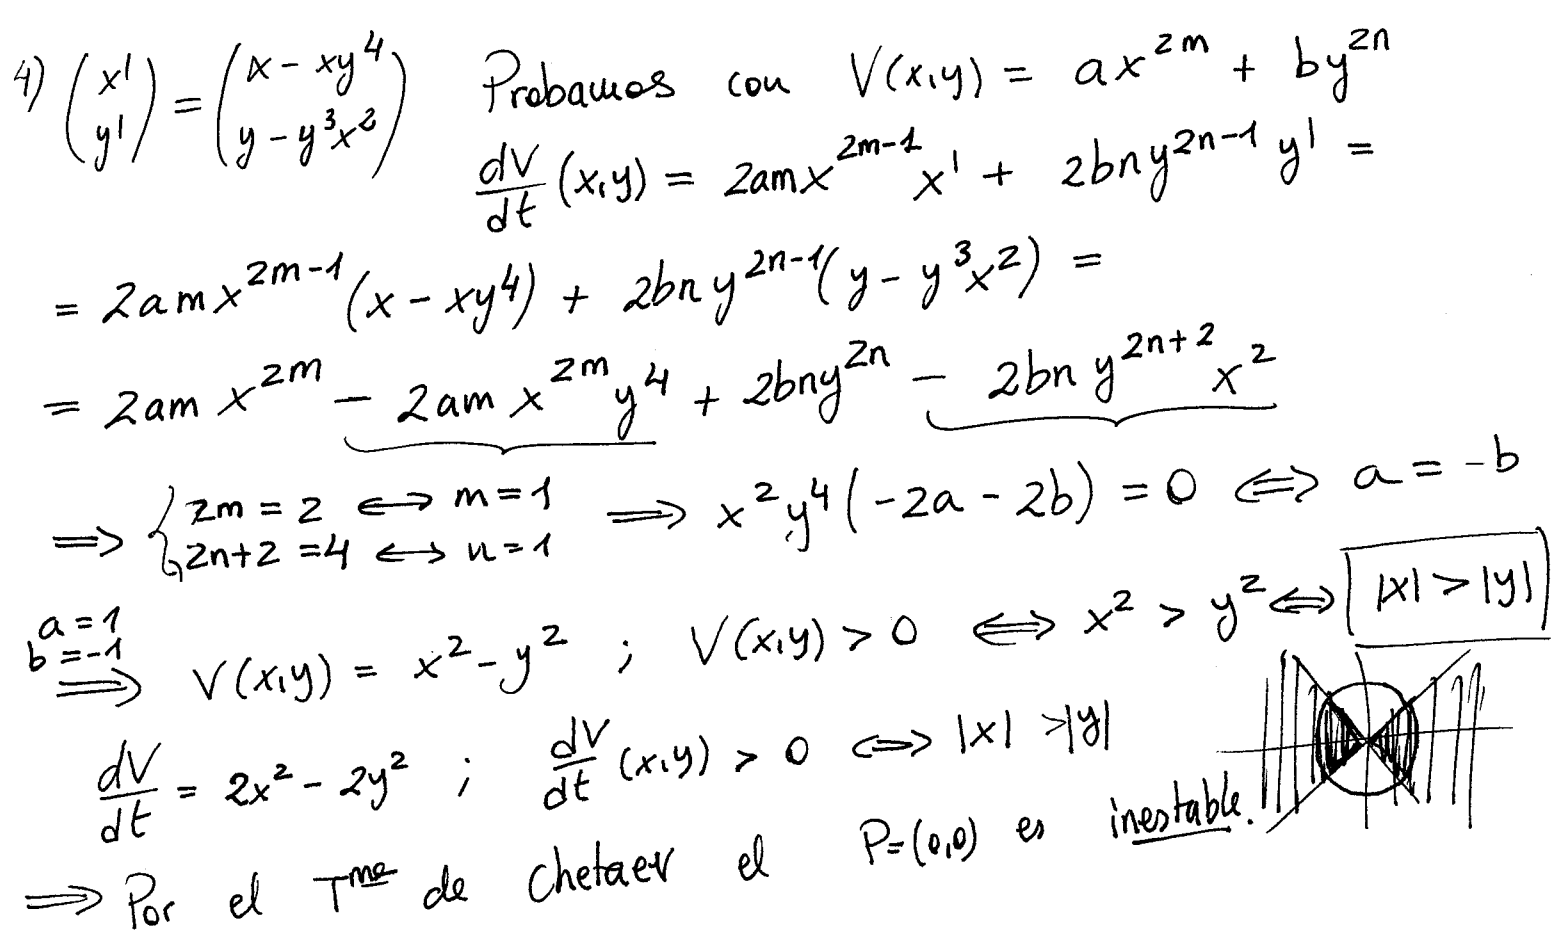 4) (x' y') = (x - xy⁴ y - y³x²) Probamos con V(x,y) = ax²ᵐ + by²ⁿ
dV/dt (x,y) = 2amx²ᵐ⁻¹ x' + 2bny²ⁿ⁻¹ y' =
= 2amx²ᵐ⁻¹(x - xy⁴) + 2bny²ⁿ⁻¹(y - y³x²) =
= 2amx²ᵐ - 2amx²ᵐy⁴ + 2bny²ⁿ - 2bny²ⁿ⁺²x²
⟹ { 2m = 2 ⟷ m = 1
2n+2 = 4 ⟷ n = 1
⟹ x²y⁴(-2a - 2b) = 0 ⟺ a = -b
a = 1
b = -1
⟹ V(x,y) = x² - y² ; V(x,y) > 0 ⟺ x² > y² ⟺ |x| > |y|
dV/dt = 2x² - 2y² ; dV/dt (x,y) > 0 ⟺ |x| > |y|
⟹ Por el Tᵐᵃ de Chetaev el P=(0,0) es inestable.